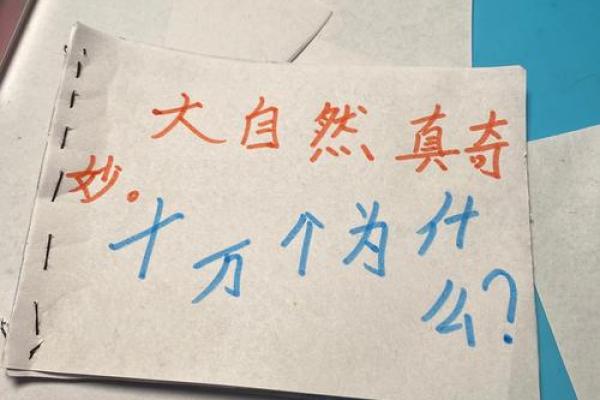 大自然真奇
妙。
十万个为什
么?